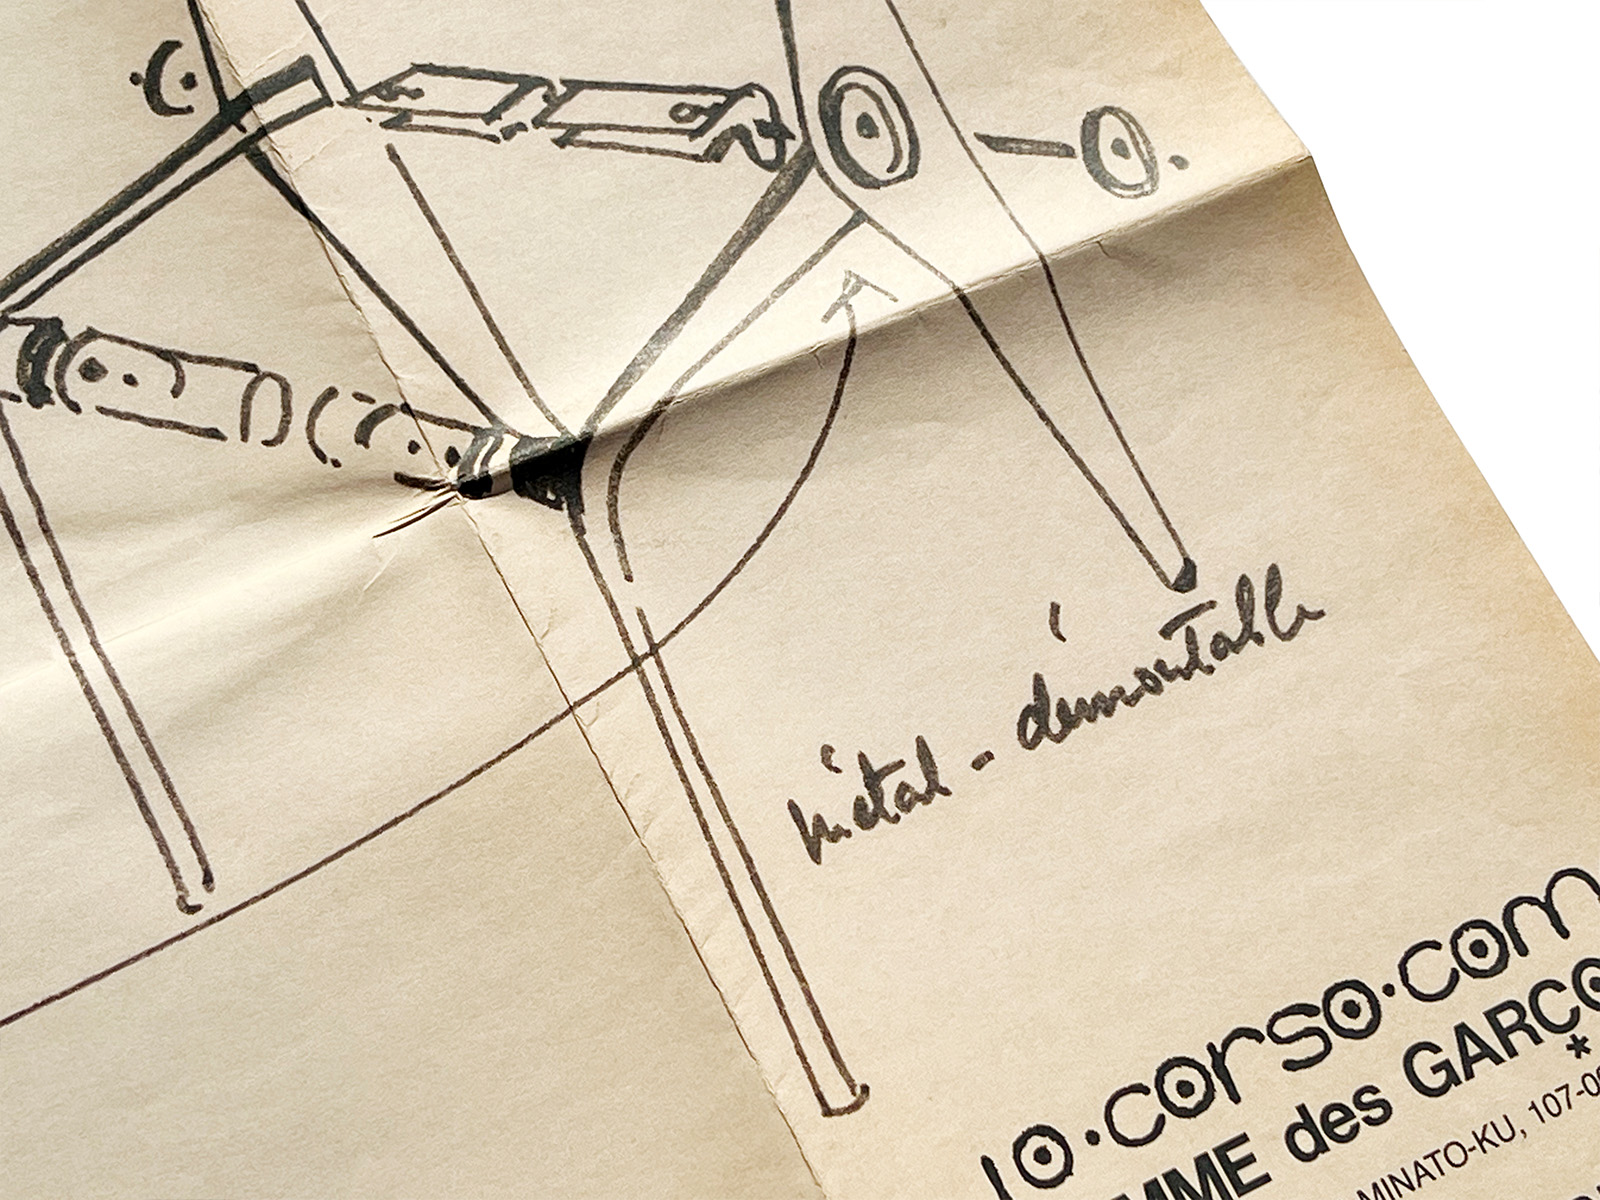 métal - démontable
10·corso·com
MME des GARÇO
*
MINATO-KU, 107-0